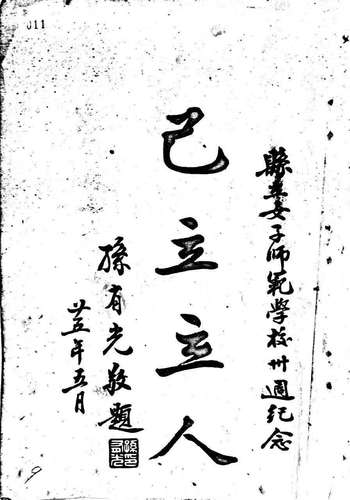 011
縣立女子師範學校卅週紀念
己立立人
孫有光敬題
廿五年五月
孫有光
9